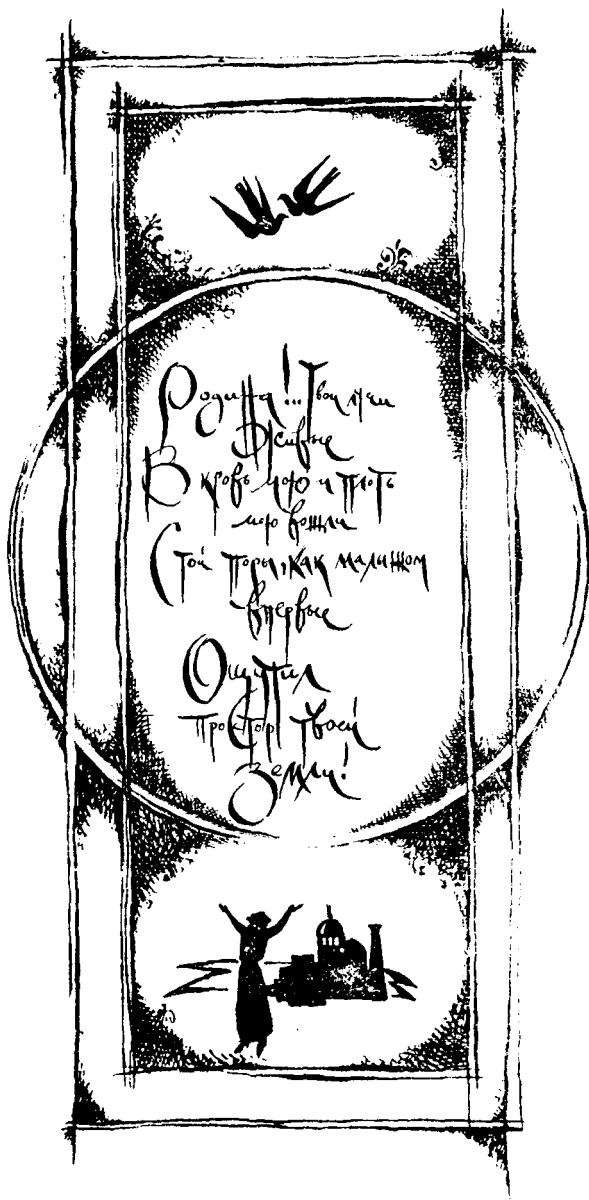 Родина!.. Твои
живые
В кровь мою и плоть
мою вошли
С той поры, как малышом
впервые
Ощутил
простор твоей
земли!